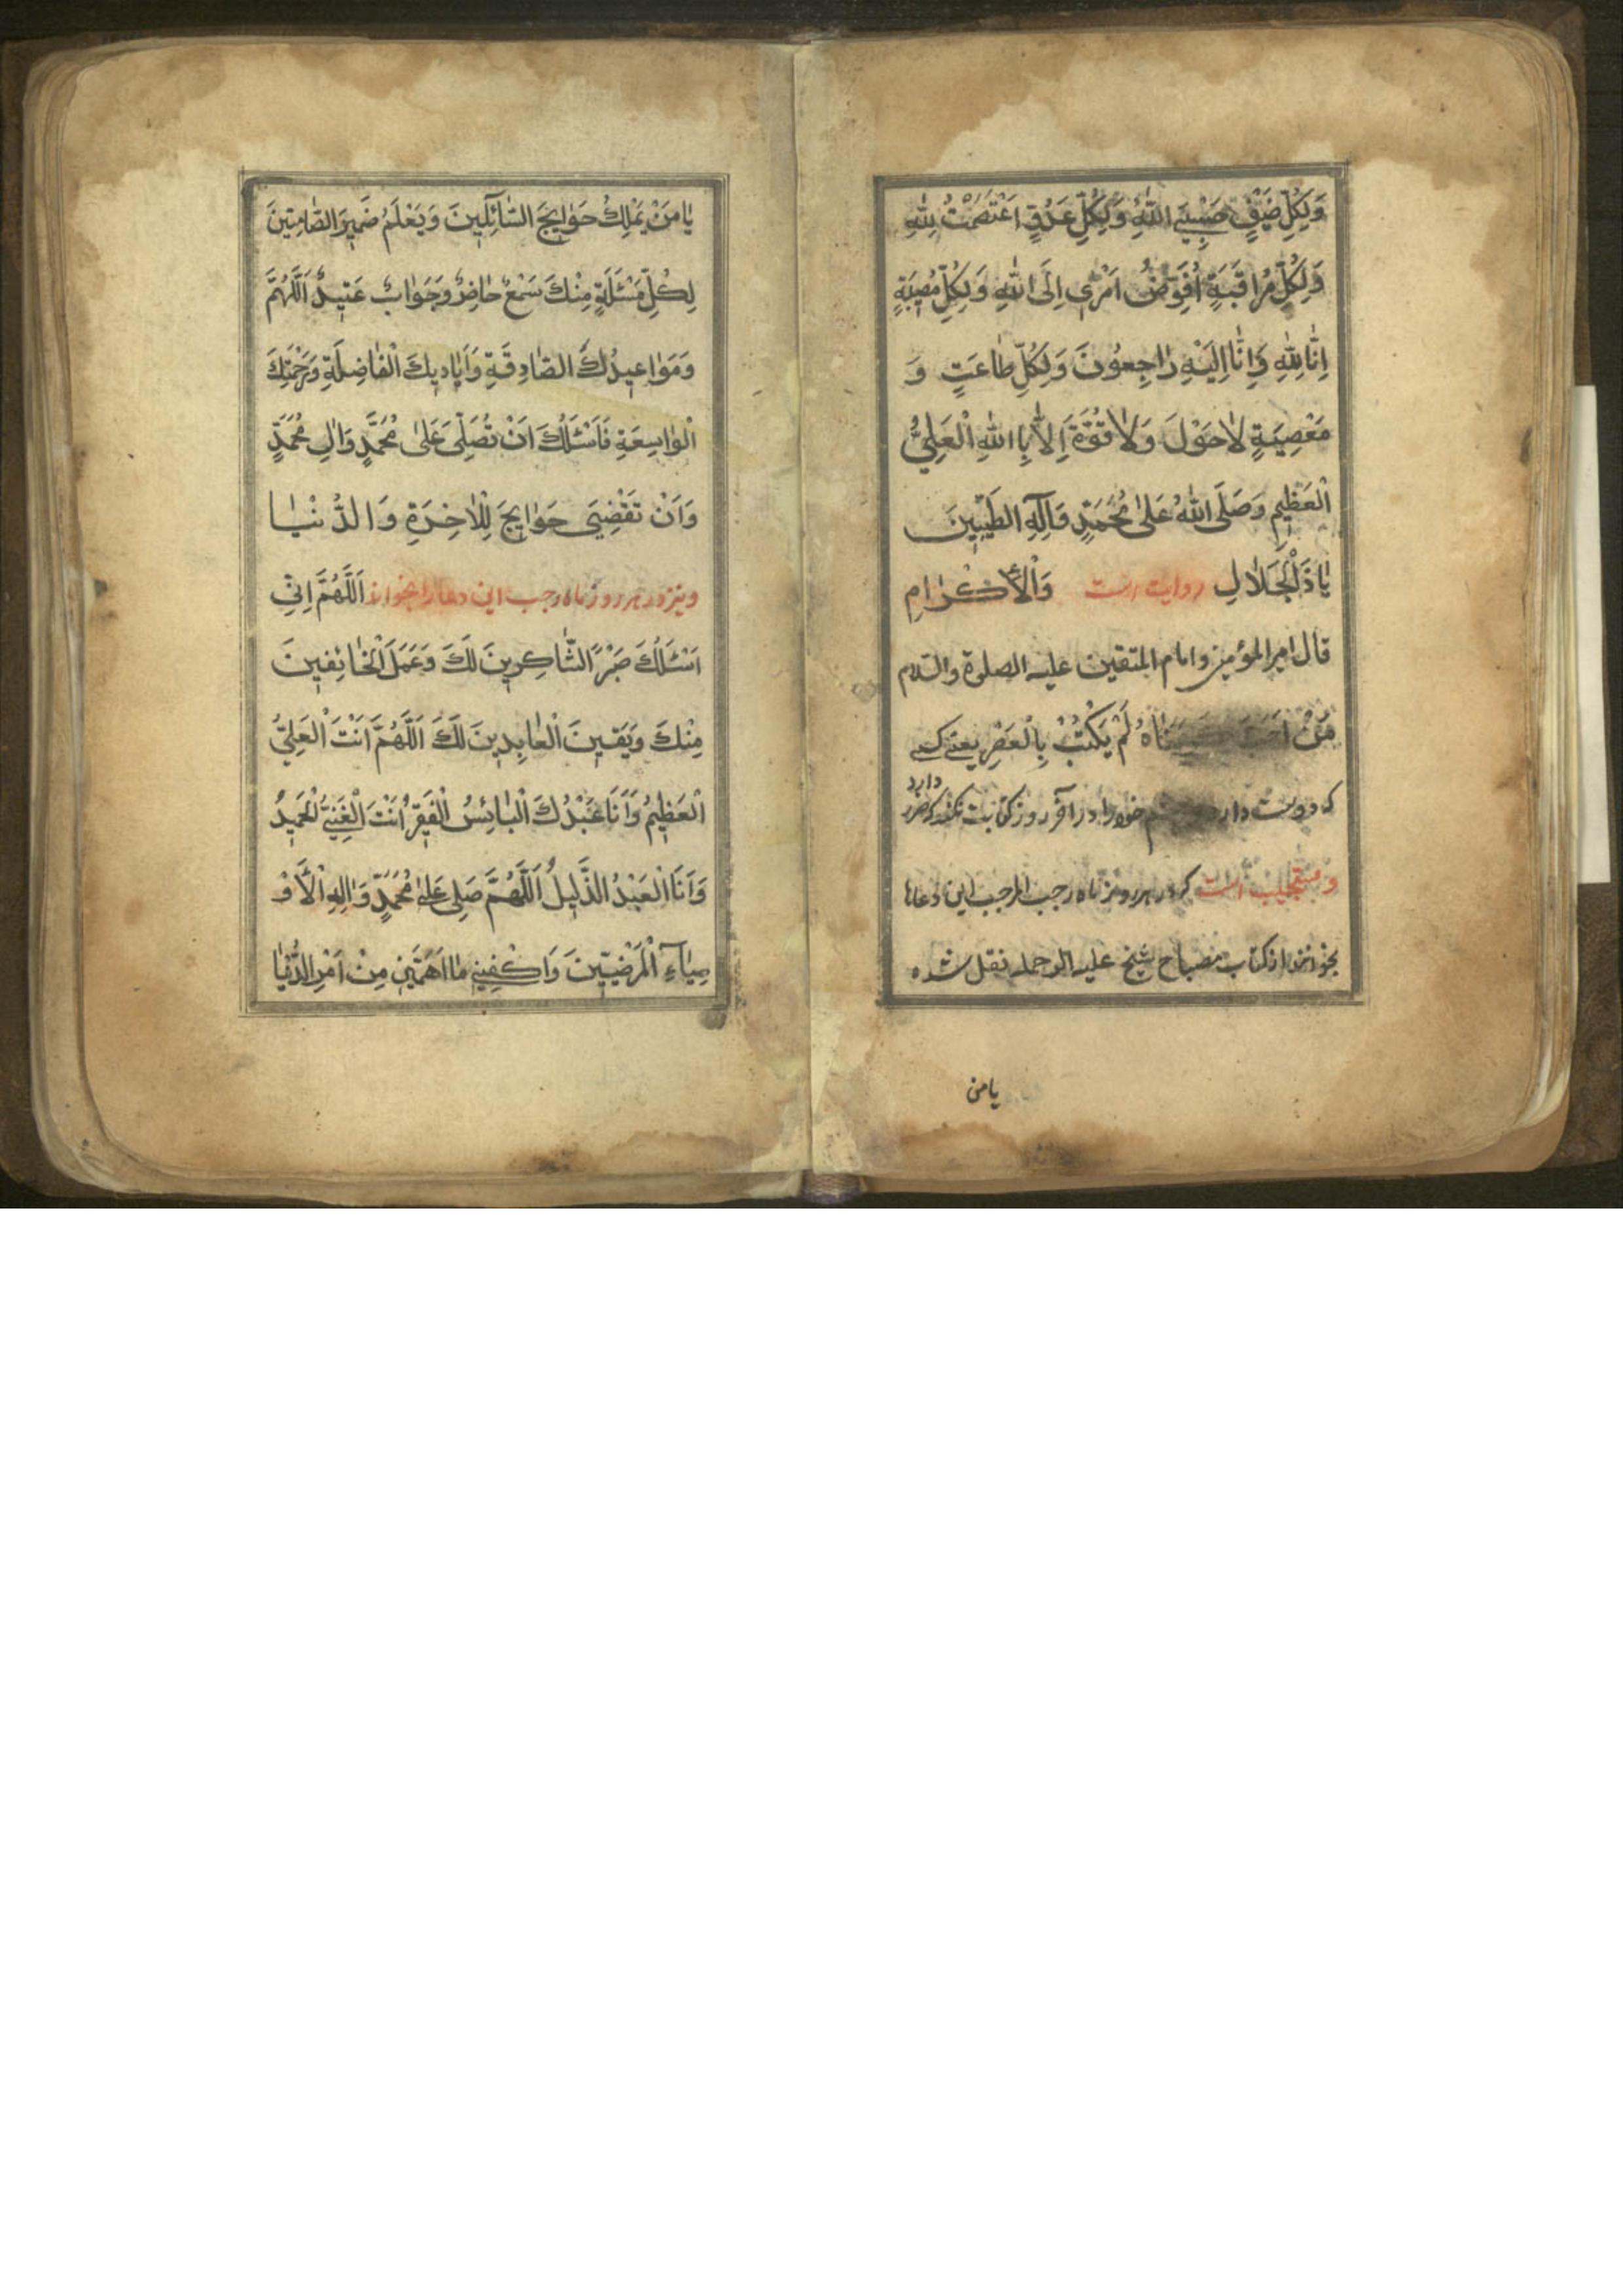 وَلِكُلِّ ضَيْقٍ حَسْبِيَ اللّٰهُ وَلِكُلِّ عَدُوٍّ اعْتَصَمْتُ لِلّٰهِ
وَلِكُلِّ مُراقَبَةٍ اُفَوِّضُ اَمْرِي اِلَى اللّٰهِ وَلِكُلِّ مُصِيبَةٍ
اِنَّا لِلّٰهِ وَاِنَّا اِلَيْهِ رٰاجِعُونَ وَلِكُلِّ طٰاعَتٍ وَ
مَعْصِيَةٍ لاٰحَوْلَ وَلاٰ قُوَّةَ اِلاّٰ بِااللّٰهِ الْعَلِيُّ
الْعَظِيمِ وَصَلَّى اللّٰهُ عَلىٰ مُحَمَّدٍ وَآلِهِ الطَيِّبِينَ
يٰاذَلْجَلاٰلِ روايت است وَالْأكْرٰامِ
قال امير المؤمنين و امام المتقين عليه الصلوة والسلام
مَنْ اَحَبَّ لَمْ يَكْتُبْ بِالْعَصْرِ يعنى كسى
كه دوست دارد خودرا در آخر روز كتابت نكند كه ضرر دارد
و مستجلب است كه در هر روز ماه رجب المرجب اين دعاها
بخوانند از كتاب مصباح شيخ عليه الرحمه نقل شده
يامن
يٰامَنْ يَمْلِكُ حَوٰايِجَ السّٰآئِلِينَ وَيَعْلَمُ ضَمِيرَ الصّٰامِتِينَ
لِكُلِّ مَسْئَلَةٍ مِنْكَ سَمْعٌ حٰاضِرٌ وَجَوٰابٌ عَتِيدٌ اَللّٰهُمَّ
وَمَوٰاعِيدُكَ الصّٰادِقَةِ وَاَيٰادِيكَ الْفٰاضِلَةِ وَرَحْمَتِكَ
الْوٰاسِعَةِ فَاَسْئَلُكَ اَنْ تُصَلِّيَ عَلىٰ مُحَمَّدٍ وَاٰلِ مُحَمَّدٍ
وَاَنْ تَقْضِيَ حَوٰايِجَ لِلْاٰخِرَةِ وَالدُّنْيٰا
ونيز در هر روز ماه رجب اين دعا را بخواند اَللّٰهُمَّ اِنّٖي
اَسْئَلُكَ صَبْرًا الشّٰاكِرِينَ لَكَ وَعَمَلَ الْخٰائِفِينَ
مِنْكَ وَيَقِينَ الْعٰابِدِينَ لَكَ اَللّٰهُمَّ اَنْتَ الْعَلِيُّ
الْعَظِيمُ وَاَنَا عَبْدُكَ الْبٰائِسُ الْفَقِيرُ اَنْتَ الْغَنِيُّ الْحَمِيدُ
وَاَنَا الْعَبْدُ الذَّلِيلُ اَللّٰهُمَّ صَلِّ عَلىٰ مُحَمَّدٍ وَاٰلِهِ الْاَوْ
صِيٰآءِ الْمَرْضِيِّينَ وَاكْفِنِي مٰا اَهَمَّنِي مِنْ اَمْرِ الدُّنْيٰا